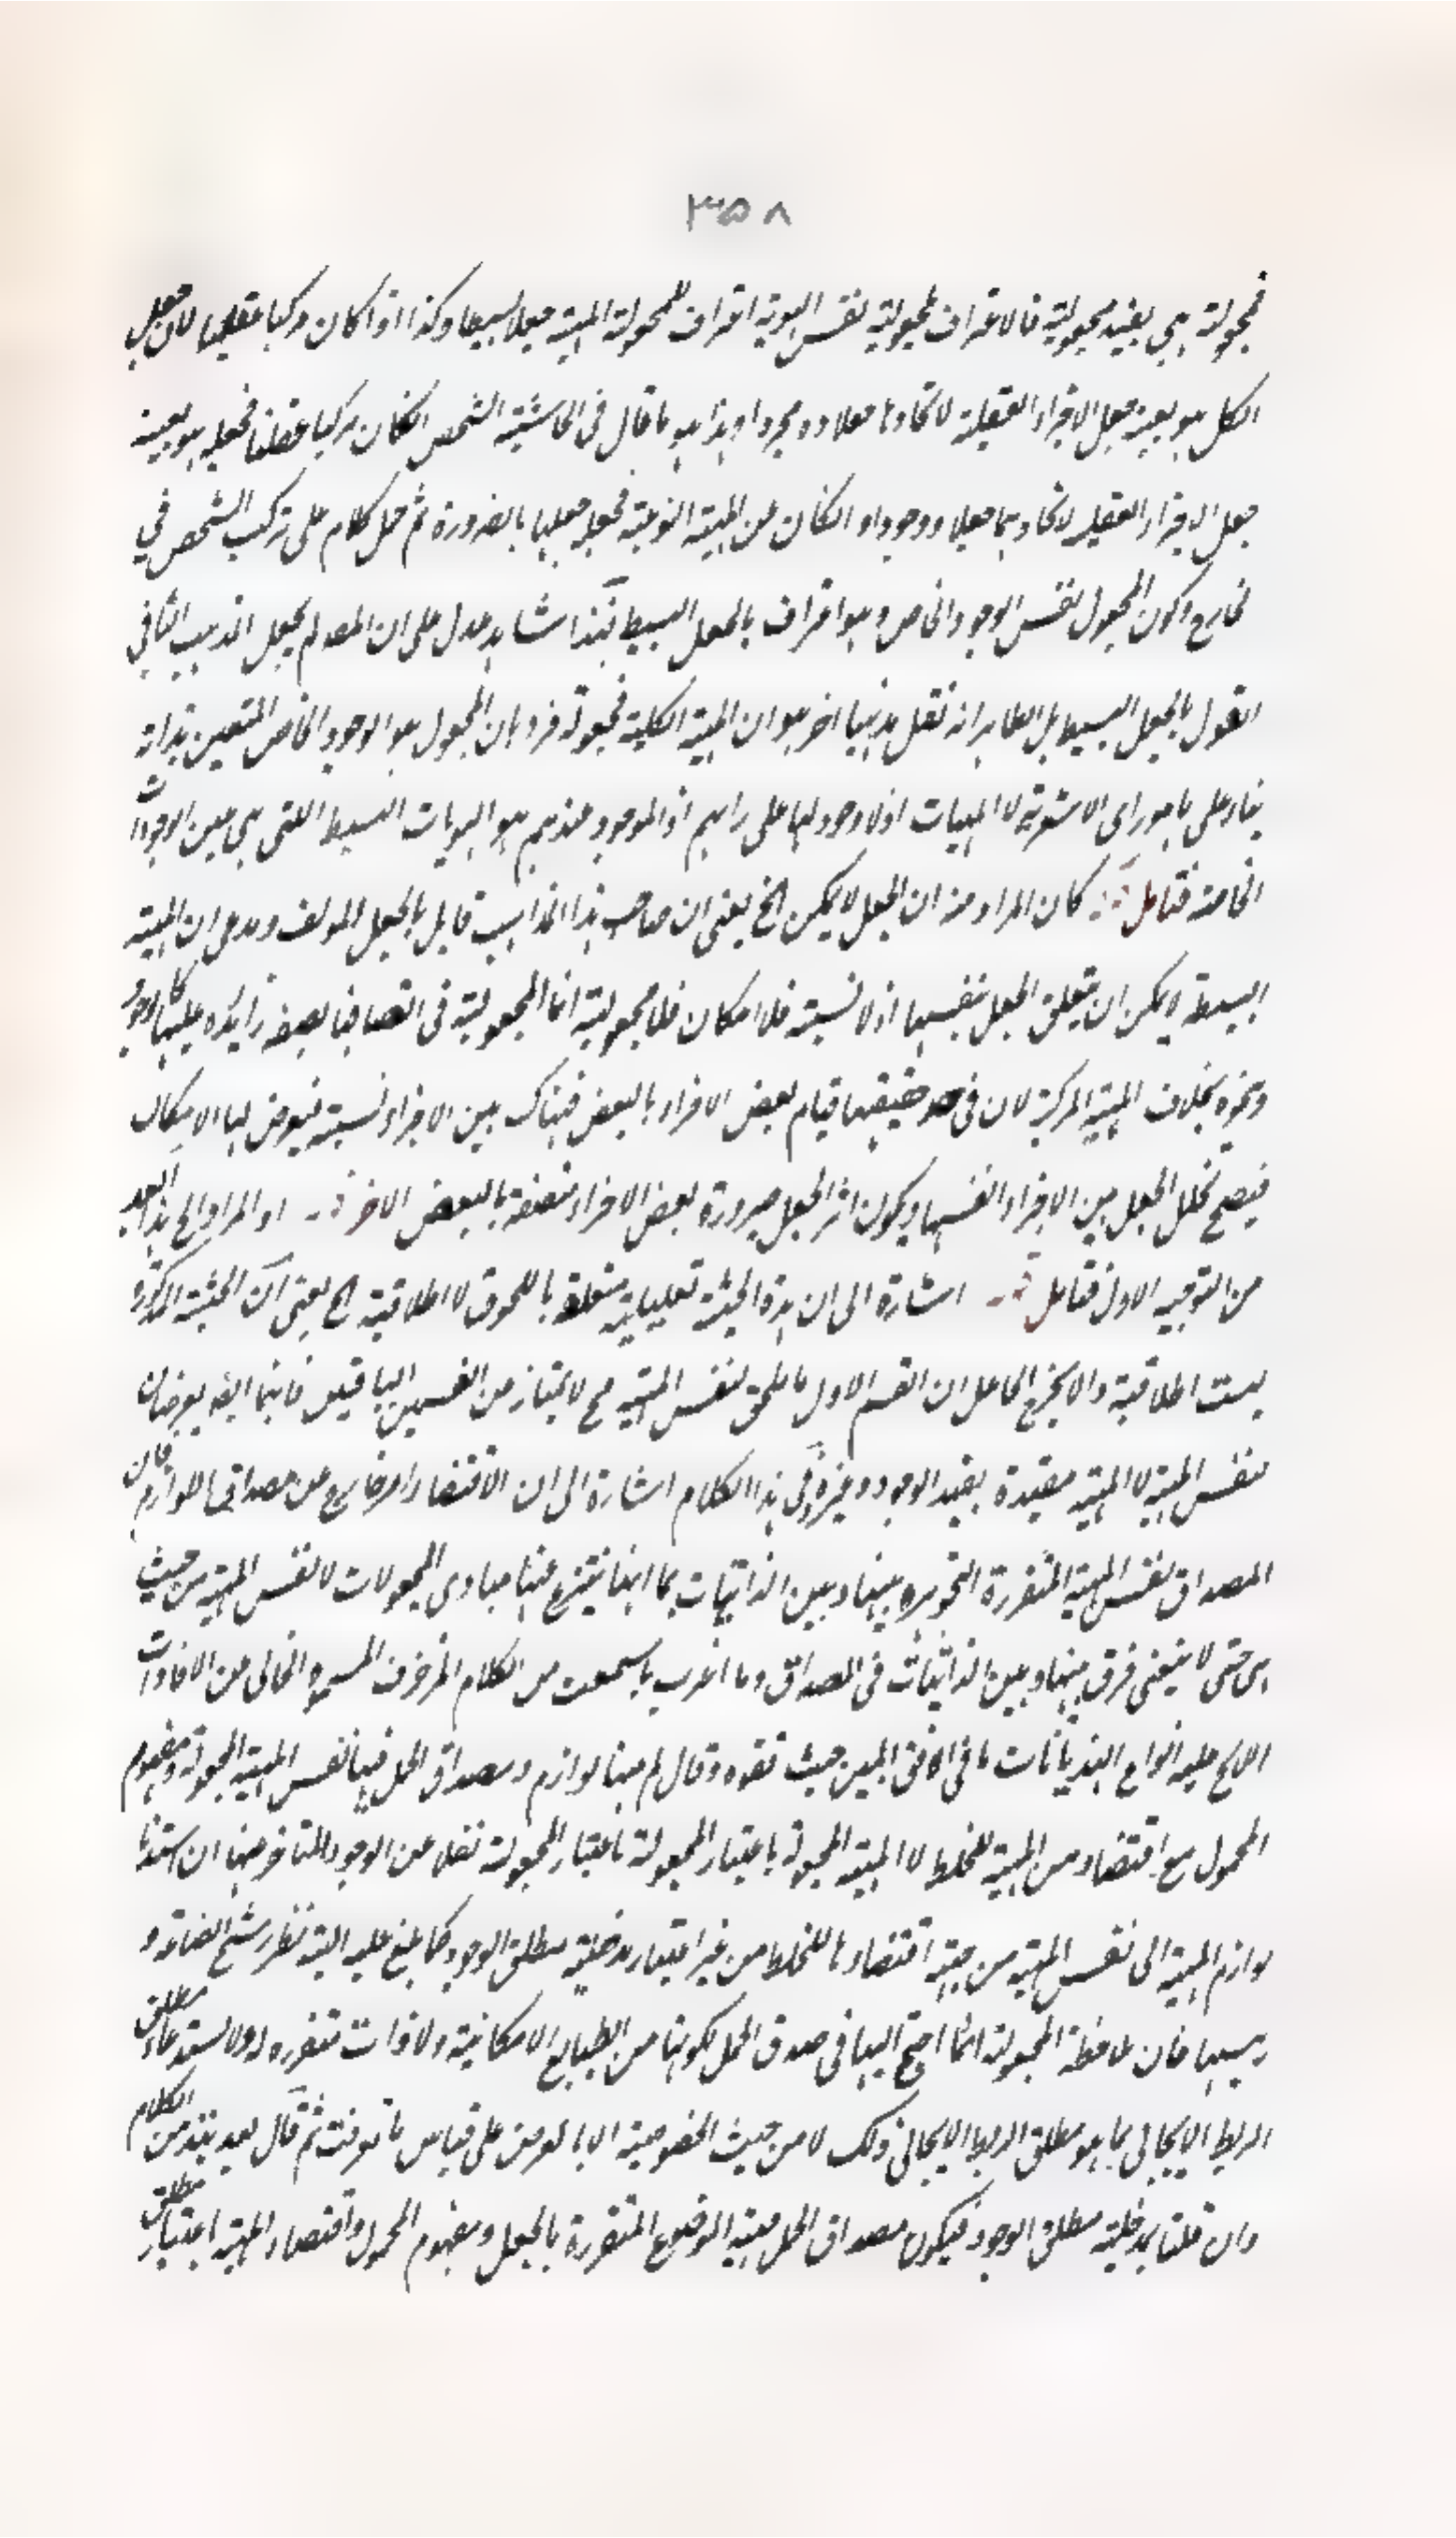 ٣٥٨
فمجعولية هى بعينه مجعولية فالاعتراف لمجعولية نفس الهوية اعتراف للمجعولية المهية جعلا بسيطا وكذا اذا كان مركبا عقليا لان جعل
الكل هو بعينه جعل الاجزاء العقلية لاتحادها جعلا ووجودا وهذا هو ما قال فى الحاشية الشخص انكان مركبا عقليا فجعله هو بعينه
جعل الاجزاء العقلية لاتحادهما جعلا ووجودا وانكان عن المهية النوعية فجعله جعلها بالضرورة ثم حمل كلام على تركب الشخص فى
الخارج وكون المجعول نفس الوجود الخاص وهو اعتراف بالجعل البسيط فهذا شاهد عدل على ان المصه لم يجعل المذهب الثانى
القول بالجعل البسيط بل الظاهر انه نقل مذهبا اخر هو ان المهية الكلية مجعولة فردها ان المجعول هو الوجود الخاص المتعين بذاته
بناء على ما هو راى الاشعرية لا المهيات اذ لا وجود لها على رايهم اذ الموجود عندهم هو الهويات البسيط اللتى هى عين الوجودات
الخاصة فتامل قوله كان المراد منه ان الجعل لا يمكن الخ يعنى ان صاحب هذا المذاهب قايل بالجعل المولف ومدعى ان المهية
البسيطة لا يمكن ان يتعلق الجعل بنفسها اذ لا نسبة فلا امكان فلا مجعولية انما المجعولية فى اتصافها بصفة زايده عليها كالوجود
وغيره بخلاف المهية المركبة لان فى حد حقيقتها قيام بعض الاجزاء بالبعض فهناك بين الاجزاء نسبة فيعرض لها الامكان
فيصح تخلل الجعل بين الاجزاء انفسها ويكون اثر الجعل صيرورة بعض الاجزاء متصفة بالبعض الاخر قوله او المراد الخ هذا ابعد
من التوجيه الاول فتامل قوله اشارة الى ان هذه الحيثية تعليلية متعلقة باللحوق لا اطلاقية الخ يعنى ان الحيثية المذكورة
ليست اطلاقية والا يخرج الحاصل ان القسم الاول ما يلحق لنفس المهية ح لا يمتاز من القسمين الباقيين فانهما ايضا يعرضان
لنفس المهية لا المهية مقيدة بقيد الوجود وغيره وفى هذا الكلام اشارة الى ان الاقتضاء امر خارج عن مصداق اللوازم فان
المصداق نفس المهية المتقررة بينها وبين الذاتيات بما انها ينتزع عنها مبادى المحمولات لا نفس المهية من حيث
هى حتى لا يبقى فرق بينها وبين الذاتيات فى المصداق وما اغرب ما سمعت من الكلام المزخرف الخالى من الافادات
عليه انواع الهذيانات ما فى الافق المبين حيث تفوه وقال لم هنا لوازم ومصداق الحمل فيها نفس المهية المجعولة ومفهوم
المحمول مع اقتضاء من المهية للخلط لا المهية المجعولة باعتبار المجعولة فاعتبار المجعولة نفلا عن الوجود المتاخر عنها ان استناد
لوازم المهية الى نفس المهية من جهة اقتضاءها للخلط من غير اعتبار مدخلية مطلق الوجود كما بلغ عليه البتة نظر الصناعة و
رييسها فان ملاحظة المجعولة انما احتج اليها فى صدق الحمل لكونها من الطبايع الامكانية ولا ذات متقرره لها ولا يستدعاء مطلق
الربط الايجابى بما هو مطلق الربط الايجابى ذلك لا من حيث الخصوصية الا بالعرض على قياس ما عرفت ثم قال بعد نبذ من الكلام
وان قلنا بمدخلية مطلق الوجود فيكون مصداق الحمل مهية الموضوع المتقررة بالجعل ومفهوم المحمول واقتضاء المهية اعتبار مطلق